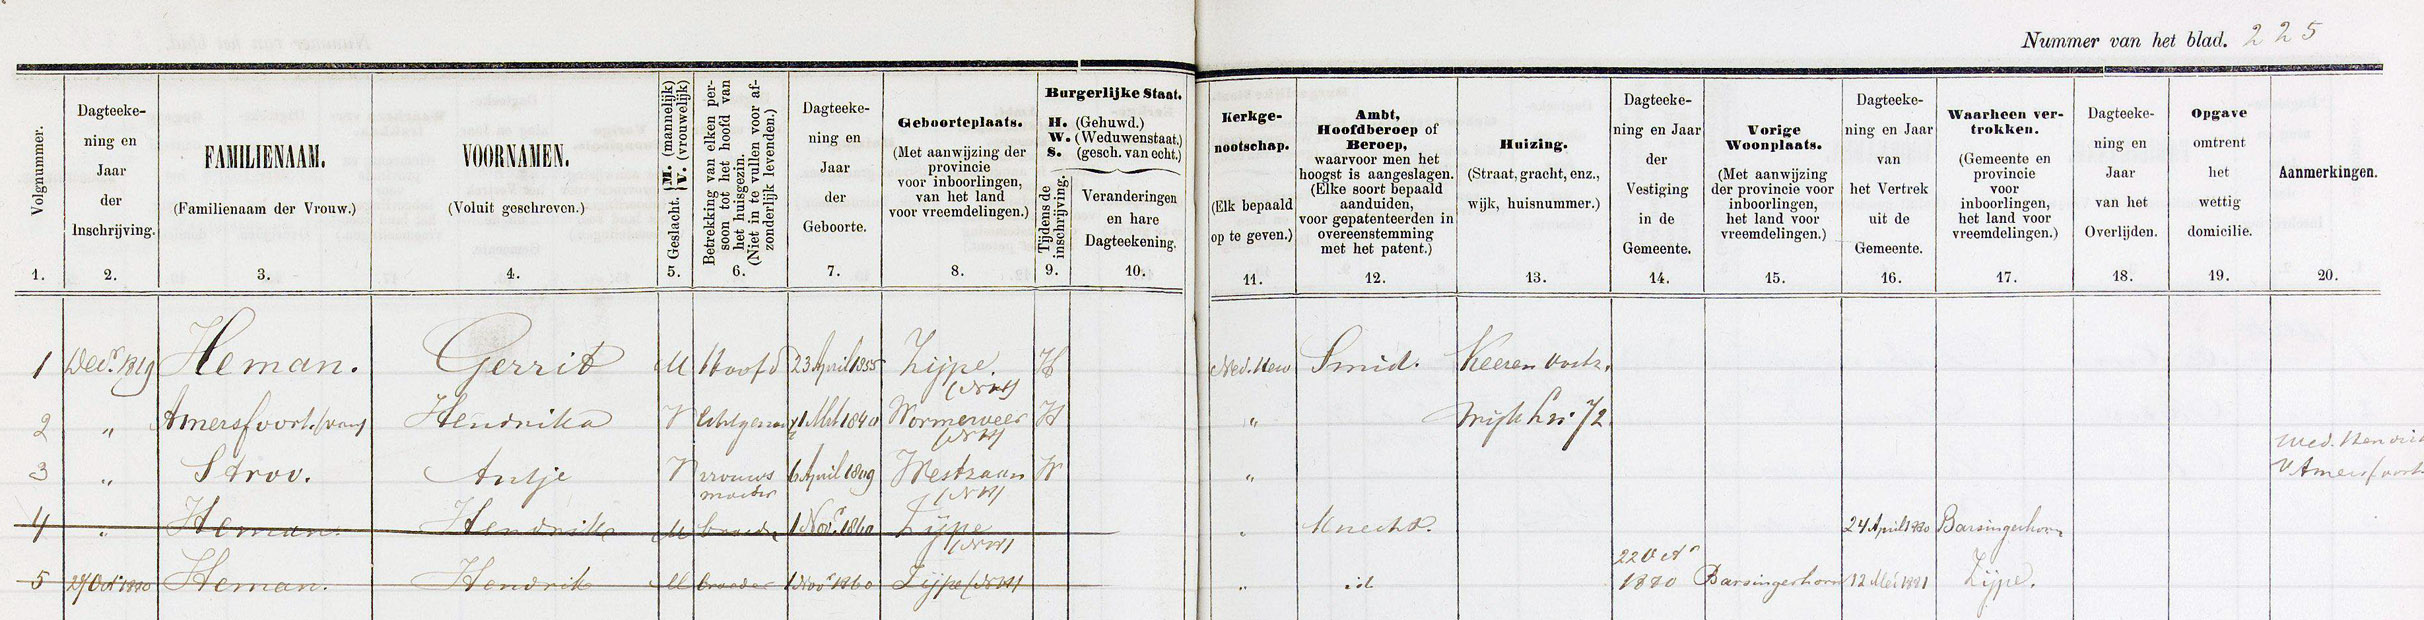 Nummer van het blad. 225
Volgnummer.
1.
Dagteeke-
ning en
Jaar
der
Inschrijving.
2.
FAMILIENAAM.
(Familienaam der Vrouw.)
3.
VOORNAMEN.
(Voluit geschreven.)
4.
Geslacht. { M. (mannelijk)
V. (vrouwelijk)
5.
Betrekking van elken per-
soon tot het hoofd van
het huisgezin.
(Niet in te vullen voor af-
zonderlijk levenden.)
6.
Dagteeke-
ning en
Jaar
der
Geboorte.
7.
Geboorteplaats.
(Met aanwijzing der
provincie
voor inboorlingen,
van het land
voor vreemdelingen.)
8.
Burgerlijke Staat.
H. (Gehuwd.)
W. (Weduwenstaat.)
S. (gesch. van echt.)
Tijdens de
inschrijving.
9.
Veranderingen
en hare
Dagteekening.
10.
Kerkge-
nootschap.
(Elk bepaald
op te geven.)
11.
Ambt,
Hoofdberoep of
Beroep,
waarvoor men het
hoogst is aangeslagen.
(Elke soort bepaald
aanduiden,
voor gepatenteerden in
overeenstemming
met het patent.)
12.
Huizing.
(Straat, gracht, enz.,
wijk, huisnummer.)
13.
Dagteeke-
ning en Jaar
der
Vestiging
in de
Gemeente.
14.
Vorige
Woonplaats.
(Met aanwijzing
der provincie voor
inboorlingen,
het land voor
vreemdelingen.)
15.
Dagteeke-
ning en Jaar
van
het Vertrek
uit de
Gemeente.
16.
Waarheen ver-
trokken.
(Gemeente en
provincie
voor
inboorlingen,
het land voor
vreemdelingen.)
17.
Dagteeke-
ning en
Jaar
van het
Overlijden.
18.
Opgave
omtrent
het
wettig
domicilie.
19.
Aanmerkingen.
20.
1 Decr 1879 Heman. Gerrit M Hoofd 23 April 1855 Zijpe. (NH) H Ned. Herv Smid. Keeren
2 " Amersfoort (van) Hendrika V Mrt 1840 Wormerveer (NH) H " Wijk L no 72
3 " Stroo. Antje V vrouws moeder 6 April 1809 Westzaan (NH) W " wed. Hendrik
v Amersfoort
4 " Heman. Hendrik M broeder 1 Novr 1860 Zijpe (NH) " Knecht. 24 April 1880 Barsingerhorn
5 27 Oct 1880 Heman. Hendrik M broeder 1 Novr 1860 Zijpe (NH) " id 22 Oct 1880 Barsingerhorn 12 Mei 1881 Zijpe.